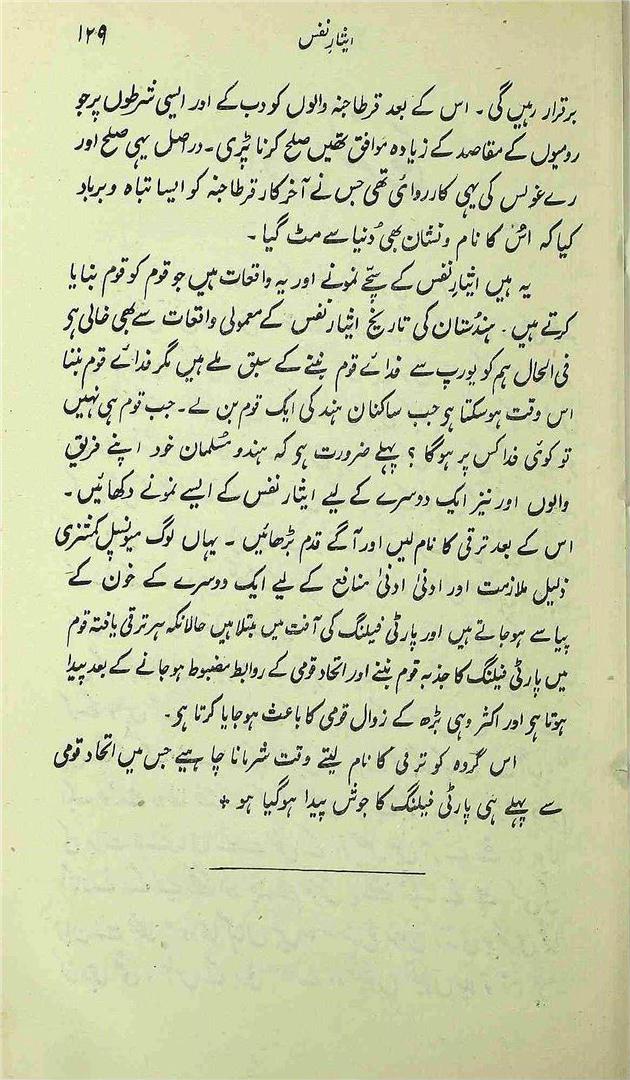 ایثارِ نفس ۱۲۹
برقرار رہیں گی ۔ اس کے بعد قرطاجنہ والوں کو دب کے اور ایسی شرطوں پر جو
رومیوں کے مقاصد کے زیادہ موافق تھیں صلح کرنا پڑی ۔ دراصل یہی صلح اور
رے غولس کی یہی کارروائی تھی جس نے آخر کار قرطاجنہ کو ایسا تباہ و برباد
کیا کہ اُس کا نام و نشان بھی دُنیا سے مٹ گیا ۔
یہ ہیں ایثارِ نفس کے سچّے نمونے اور یہ واقعات ہیں جو قوم کو قوم بنایا
کرتے ہیں ۔ ہندُستان کی تاریخ ایثارِ نفس کے معمولی واقعات سے بھی خالی ہی
فی الحال ہم کو یورپ سے فدائے قوم بننے کے سبق ملے ہیں مگر فدائے قوم بننا
اس وقت ہو سکتا ہی جب ساکنان ہند کی ایک قوم بن لے ۔ جب قوم ہی نہیں
تو کوئی فدا کس پر ہوگا ؟ پہلے ضرورت ہی کہ ہندو مُسلمان خود اپنے فریق
والوں اور نیز ایک دوسرے کے لیے ایثار نفس کے ایسے نمونے دکھائیں ۔
اس کے بعد ترقی کا نام لیں اور آگے قدم بڑھائیں ۔ یہاں لوگ میونسپل کمشنری
ذلیل ملازمت اور ادنیٰ ادنیٰ منافع کے لیے ایک دوسرے کے خون کے
پیاسے ہو جاتے ہیں اور پارٹی فیلنگ کی آفت میں مبتلا ہیں حالانکہ ہر ترقی یافتہ قوم
میں پارٹی فیلنگ کا جذبہ قوم بننے اور اتحاد قومی کے روابط مضبوط ہو جانے کے بعد پیدا
ہوتا ہی اور اکثر وہی بڑھ کے زوال قومی کا باعث ہو جایا کرتا ہی ۔
اس گروہ کو ترقی کا نام لیتے وقت شرمانا چاہیے جس میں اتحاد قومی
سے پہلے ہی پارٹی فیلنگ کا جوش پیدا ہوگیا ہو +